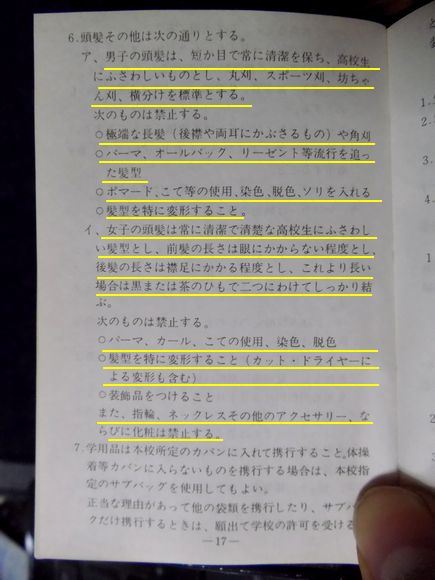 6. 頭髪その他は次の通りとする。
ア、男子の頭髪は、短か目で常に清潔を保ち、高校生
にふさわしいものとし、丸刈、スポーツ刈、坊ちゃ
ん刈、横分けを標準とする。
次のものは禁止する。
○極端な長髪（後襟や両耳にかぶさるもの）や角刈
○パーマ、オールバック、リーゼント等流行を追っ
た髪型
○ポマード、こて等の使用、染色、脱色、ソリを入れる
○髪型を特に変形すること。
イ、女子の頭髪は常に清潔で清楚な高校生にふさわし
い髪型とし、前髪の長さは眼にかからない程度とし、
後髪の長さは襟足にかかる程度とし、これより長い
場合は黒または茶のひもで二つにわけてしっかり結
ぶ。
次のものは禁止する。
○パーマ、カール、こての使用、染色、脱色
○髪型を特に変形すること（カット・ドライヤーに
よる変形も含む）
○装飾品をつけること
また、指輪、ネックレスその他のアクセサリー、な
らびに化粧は禁止する。
7. 学用品は本校所定のカバンに入れて携行すること。体操
着等カバンに入らないものを携行する場合は、本校指
定のサブバッグを使用してもよい。
正当な理由があって他の袋類を携行したり、サブバッ
クだけ携行するときは、願出て学校の許可を受ける
—17—